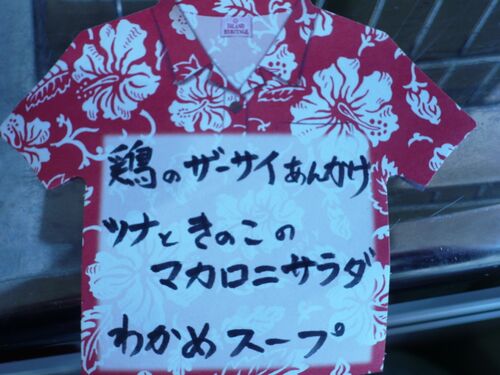 ISLAND
HERITAGE
鶏のザーサイあんかけ
ツナときのこの
マカロニサラダ
わかめスープ